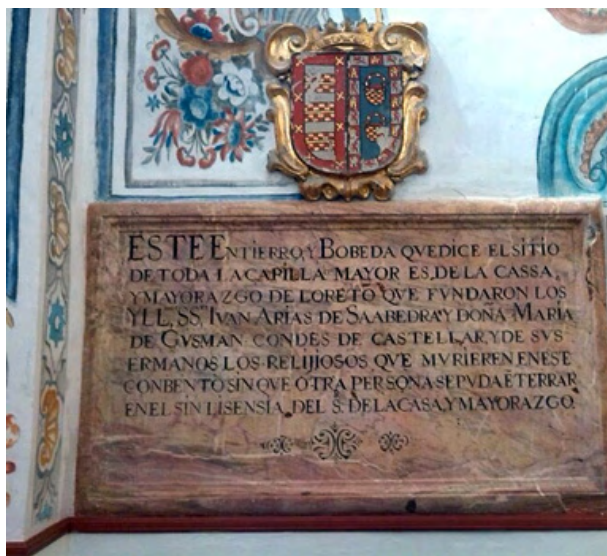 ESTE ENTIERRO, Y BOBEDA QVEDICE EL SITIO
DE TODA LA CAPILLA MAYOR ES, DE LA CASSA,
Y MAYORAZGO DE LORETO QVE FVNDARON LOS
YLL, SS, IVAN ARIAS DE SAABEDRA Y DOÑA MARIA
DE GVSMAN CONDES DE CASTELLAR, Y DE SVS
ERMANOS LOS RELIJIOSOS QVE MVRIEREN EN ESTE
CONBENTO SIN QVE OTRA PERSONA SE PVDA ĒTERRAR
EN EL SIN LISENSIA, DEL S. DE LA CASA, Y MAYORAZGO.